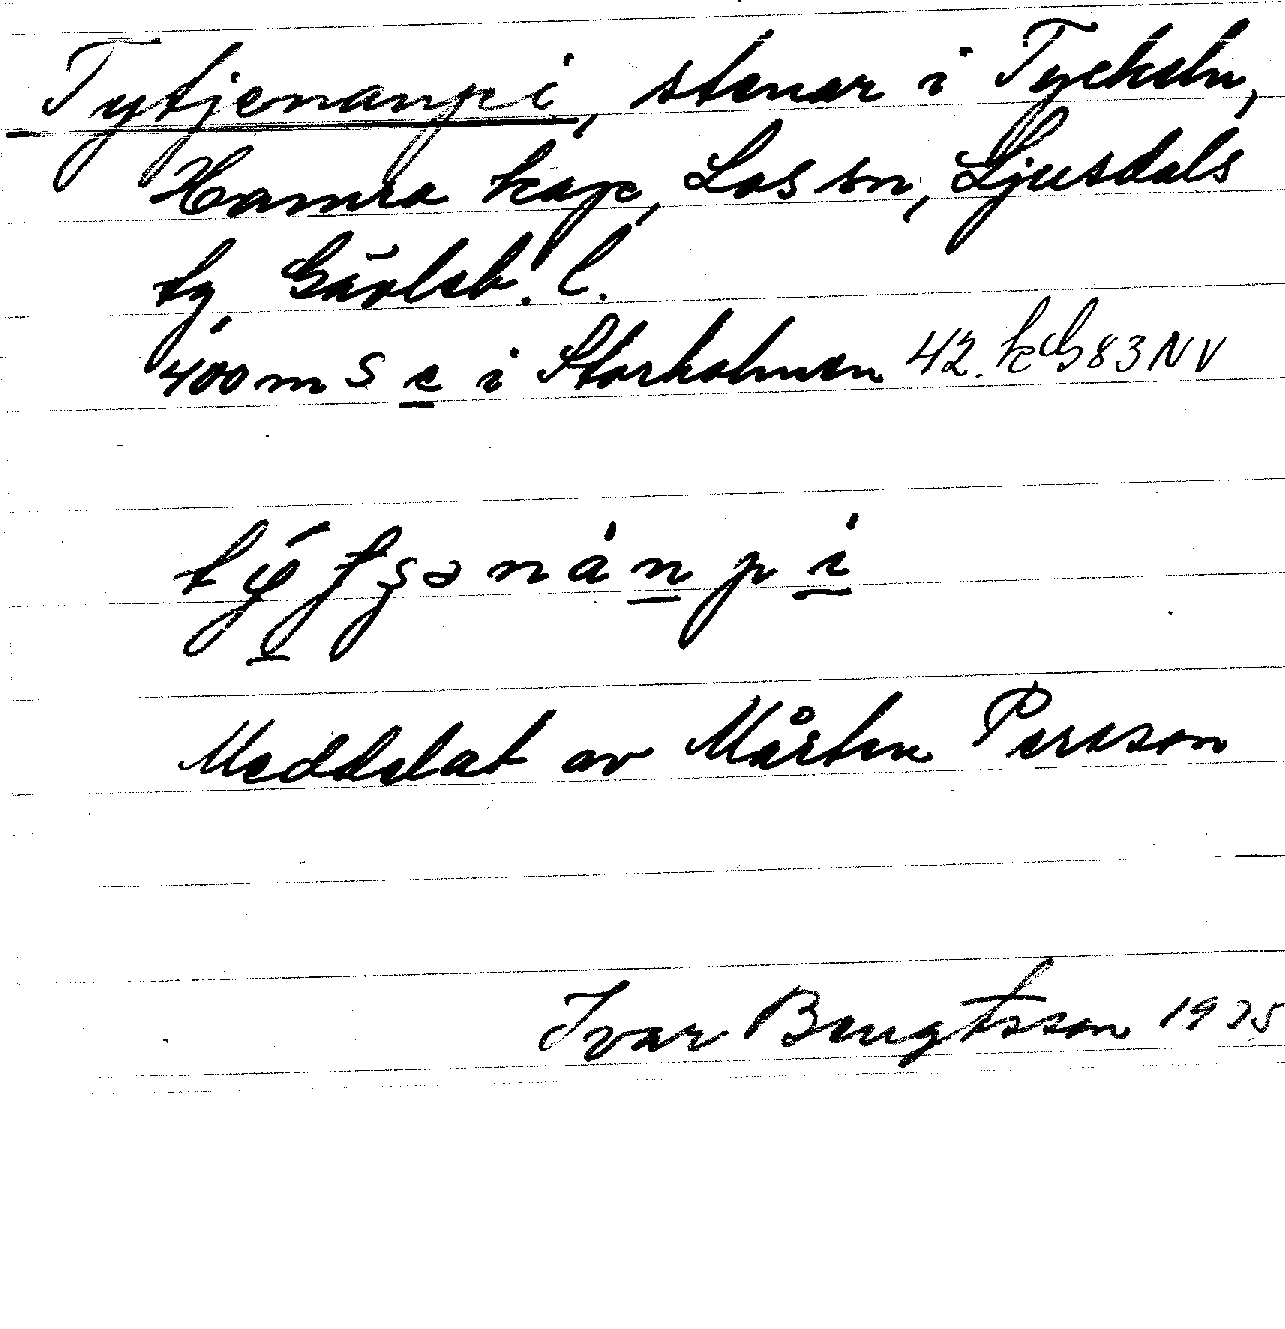 Tytjenanpi, stenar i Tyckeln,
Hamra kap, Los sn, Ljusdals
tg, Gävleb. l.
400 m S e i Storholmen 42. 83 NV
Meddelat av Mårten Persson
Ivar Bengtsson 1935